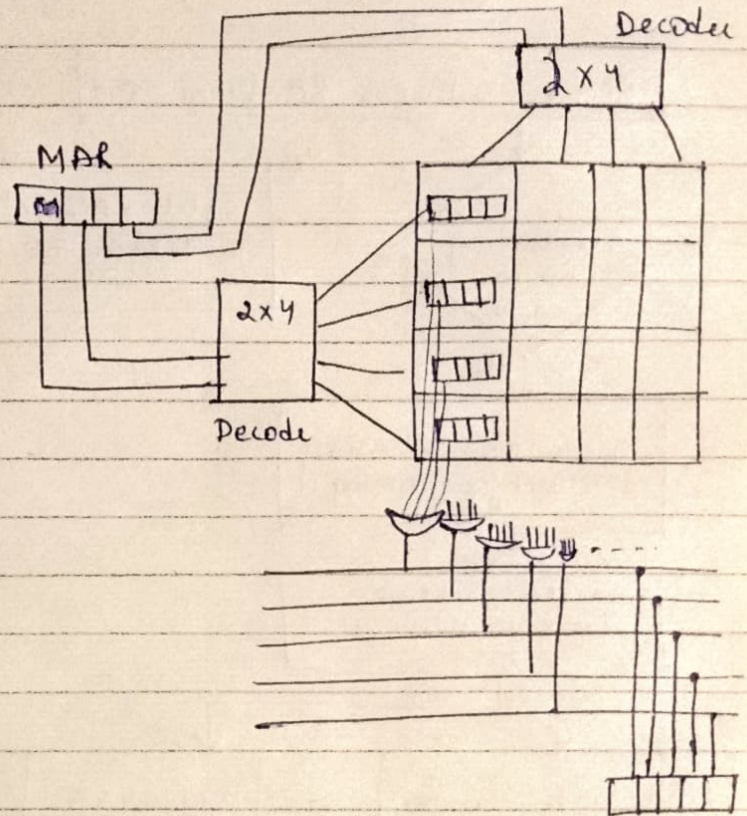 Decoder
2 x 4
MAR
2 x 4
Decode